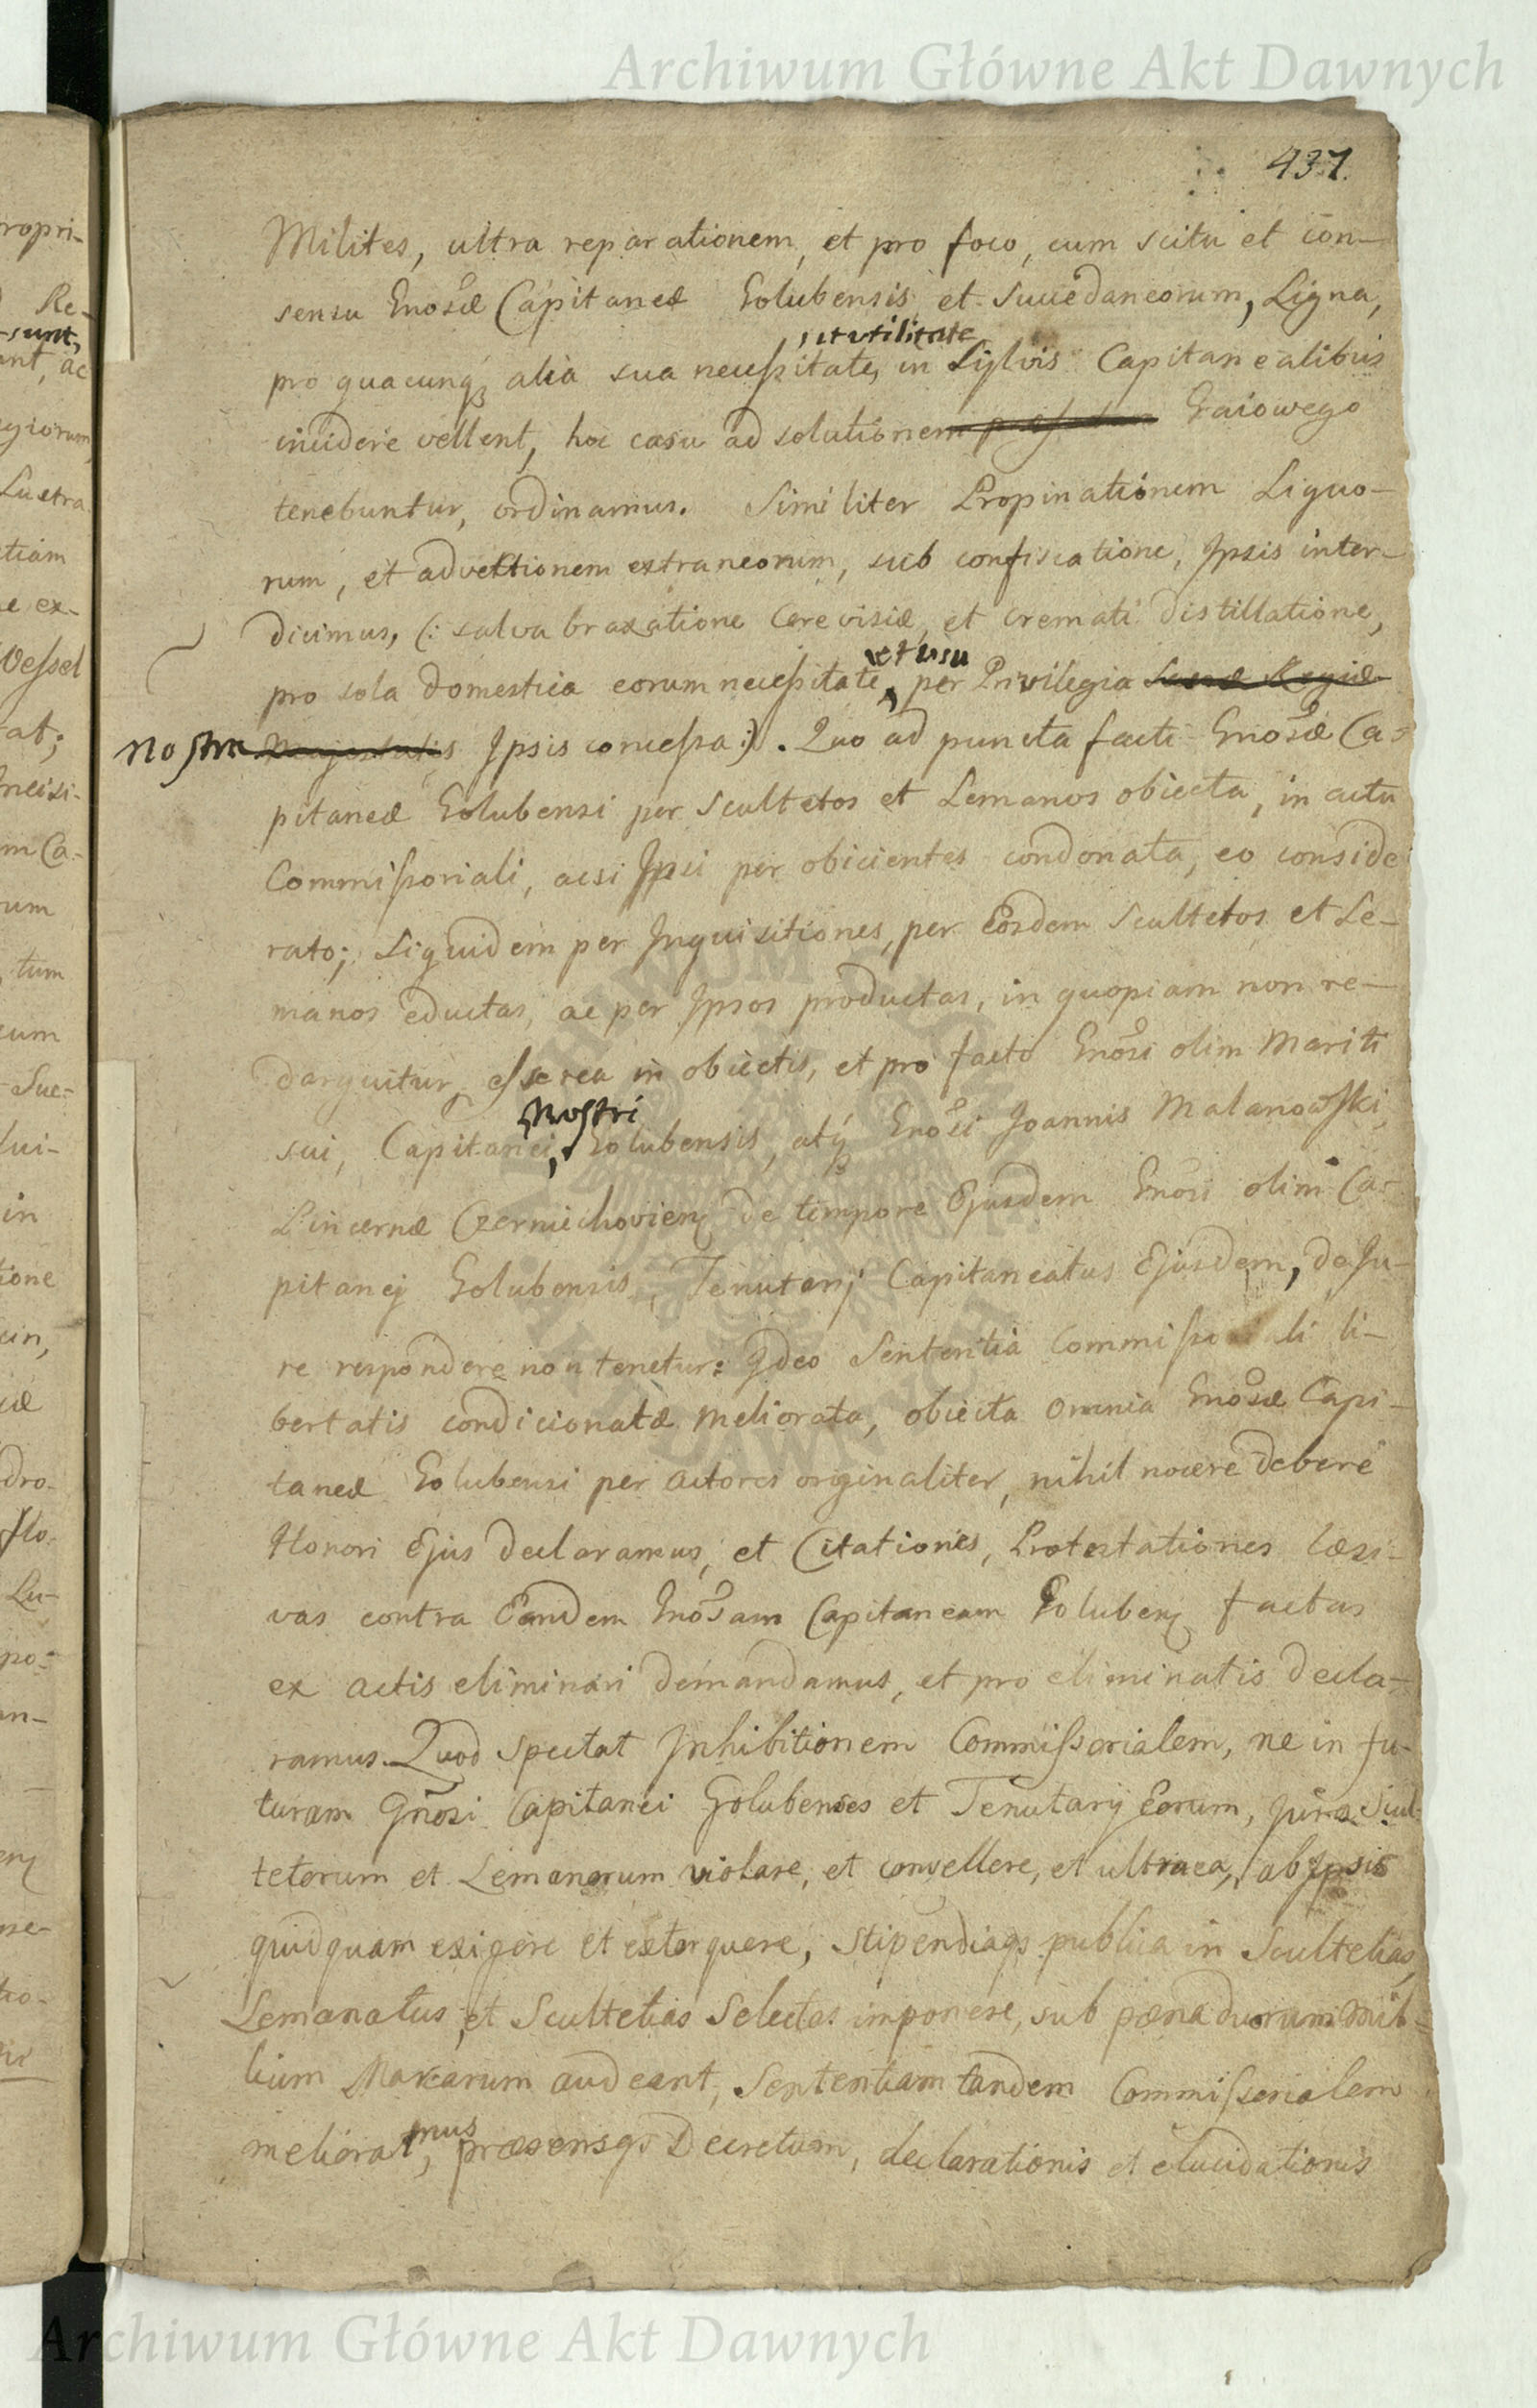 Archiwum Główne Akt Dawnych
437.
Milites, ultra reparationem, et pro foco, cum scitu et con-
sensu Gnosæ Capitaneæ Golubensis et Succedaneorum, Ligna,
, et utilitate
pro quacunq; alia sua necessitate, in Sylvis Capitanealibus
incidere vellent, hoc casu ad solutionem Gaiowego
tenebuntur, ordinamus. Similiter Propinationem Liquo-
rum, et advectionem extraneorum, sub confiscatione, Ipsis inter-
dicimus, (: salva braxatione Cerevisiæ, et cremati distillatione,
et usu
pro sola domestica eorum necessitate, per Privilegia Sacræ Regiæ
nostra Majestatis Ipsis concessa :). Quo ad puncta facti Gnosæ Ca-
pitaneæ Golubensi per Scultetos et Lemanos obiecta, in actu
Commissoriali, acsi Ipsi per obicientes condonata, eo conside
rato; siquidem per Inquisitiones, per Eosdem Scultetos et Le-
manos eductas, ac per Ipsos productas, in quopiam non re-
darguitur, esse rea in obiectis, et pro facto Gnosi olim Mariti
Nostri
sui, Capitanei, Golubensis, atq; Gnosi Joannis Malanowski,
Pincernæ Czerniechovien de tempore Ejusdem Gnosi olim Ca-
pitanej Golubensis, Tenutarij Capitaneatus Ejusdem, de Ju-
re respondere non tenetur: Ideo Sententia Commissoriali li-
bertatis condicionatæ meliorata, obiecta omnia Gnosæ Capi-
taneæ Golubensi per actores originaliter, nihil nocere debere
Honori Ejus declaramus, et Citationes, Protestationes læsi-
vas contra Eandem Gnosam Capitaneam Goluben factas
ex actis eliminari demandamus, et pro eliminatis decla-
ramus. Quod spectat Inhibitionem Commissorialem, ne in fu-
turam Gnosi Capitanei Golubenses et Tenutarij Eorum, jura Scul-
tetorum et Lemanorum violare, et convellere, et ultra ea, ab Ipsis
quidquam exigere et extorquere, stipendiaqs publica in Scultetias,
Lemanatus, et Scultetias Selectas imponere, sub pæna duorum mil-
lium Marcarum audeant, Sententiam tandem Commissorialem
mus
meliorat, præsensqs Decretum, declarationis et elucidationis
Archiwum Główne Akt Dawnych